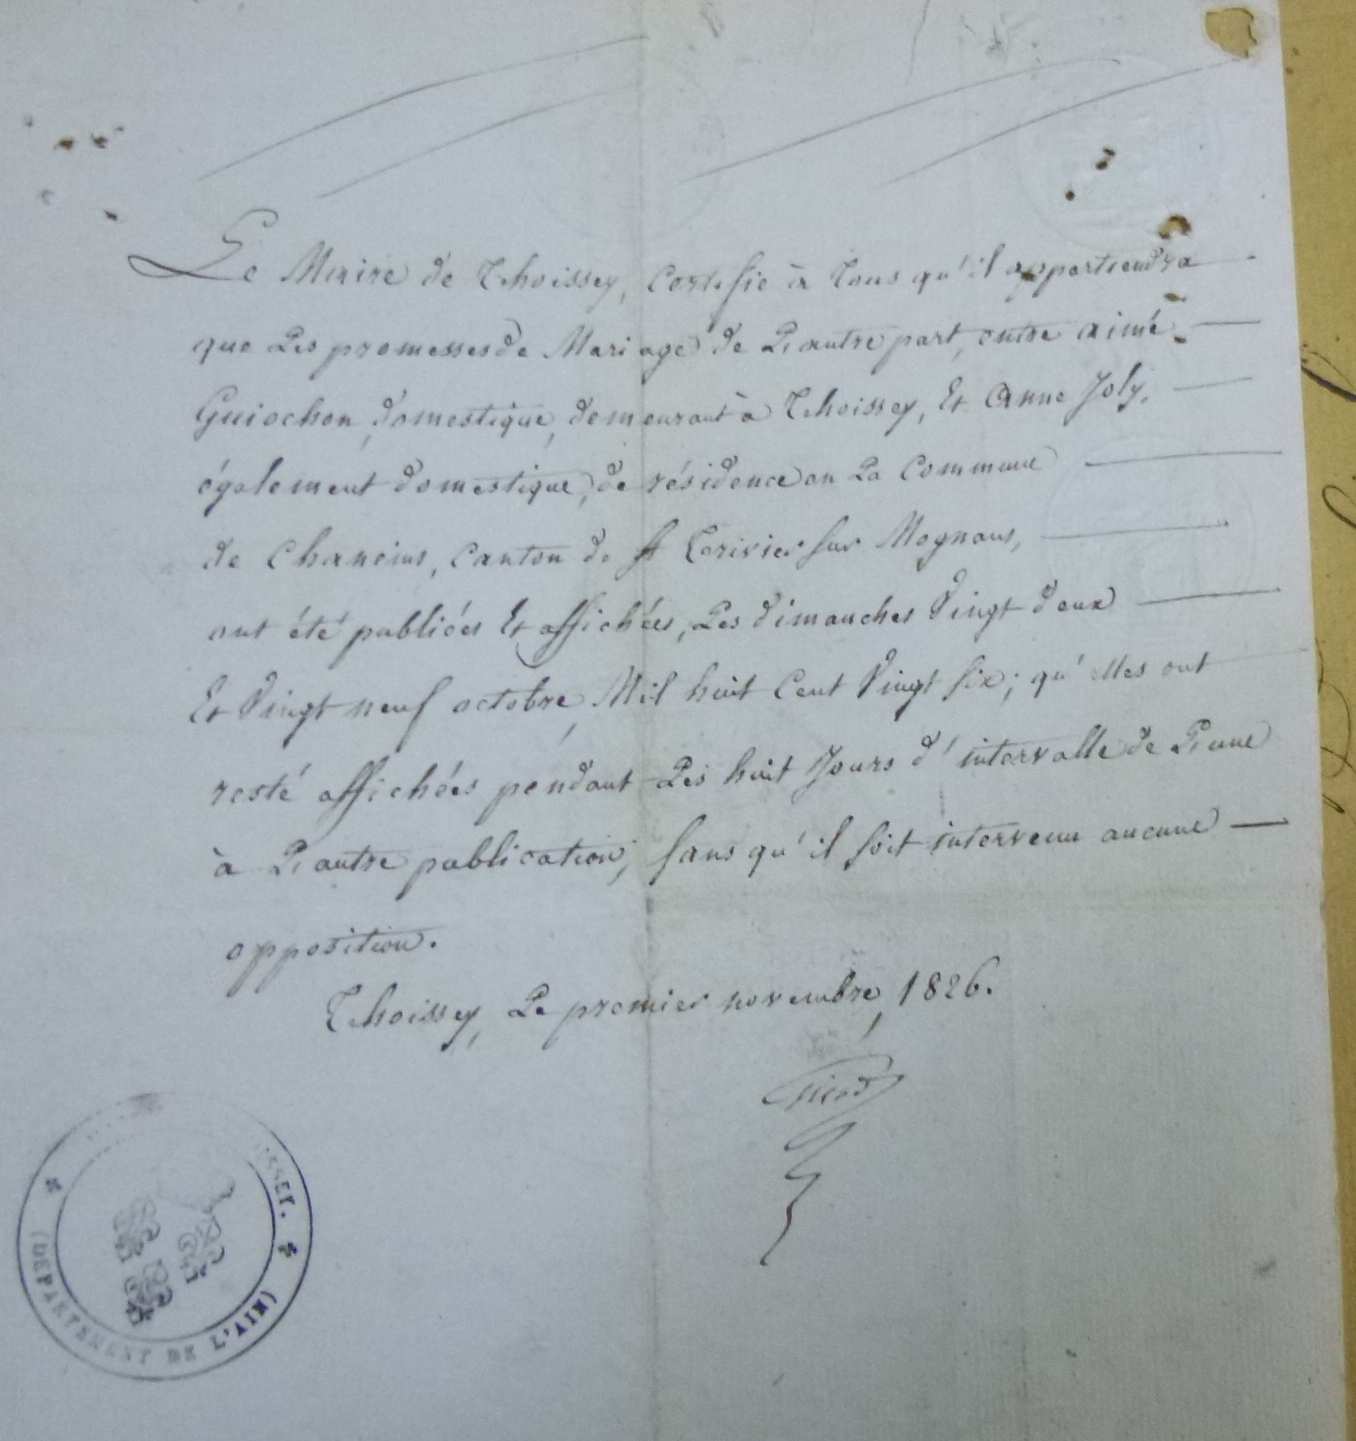 Le Maire de Thoissey, Certifie à tous qu'il appartiendra
que Les promesses de Mariage de L'autre part, entre aimé
Guiochon, domestique, demeurant à Thoissey, Et Anne Joly,
également domestique, de résidence en La Commune
de Chaneins, Canton de St Trivier sur Mognans,
ont été publiées Et affichées, Les dimanches Vingt deux
Et Vingt neuf octobre, Mil huit Cent Vingt six; qu'elles ont
resté affichées pendant Les huit Jours d'intervalle de L'une
à L'autre publication, sans qu'il soit intervenu aucune
opposition.
Thoissey, Le premier novembre, 1826.
SSEY.
(DEPARTEMENT DE L'AIN)